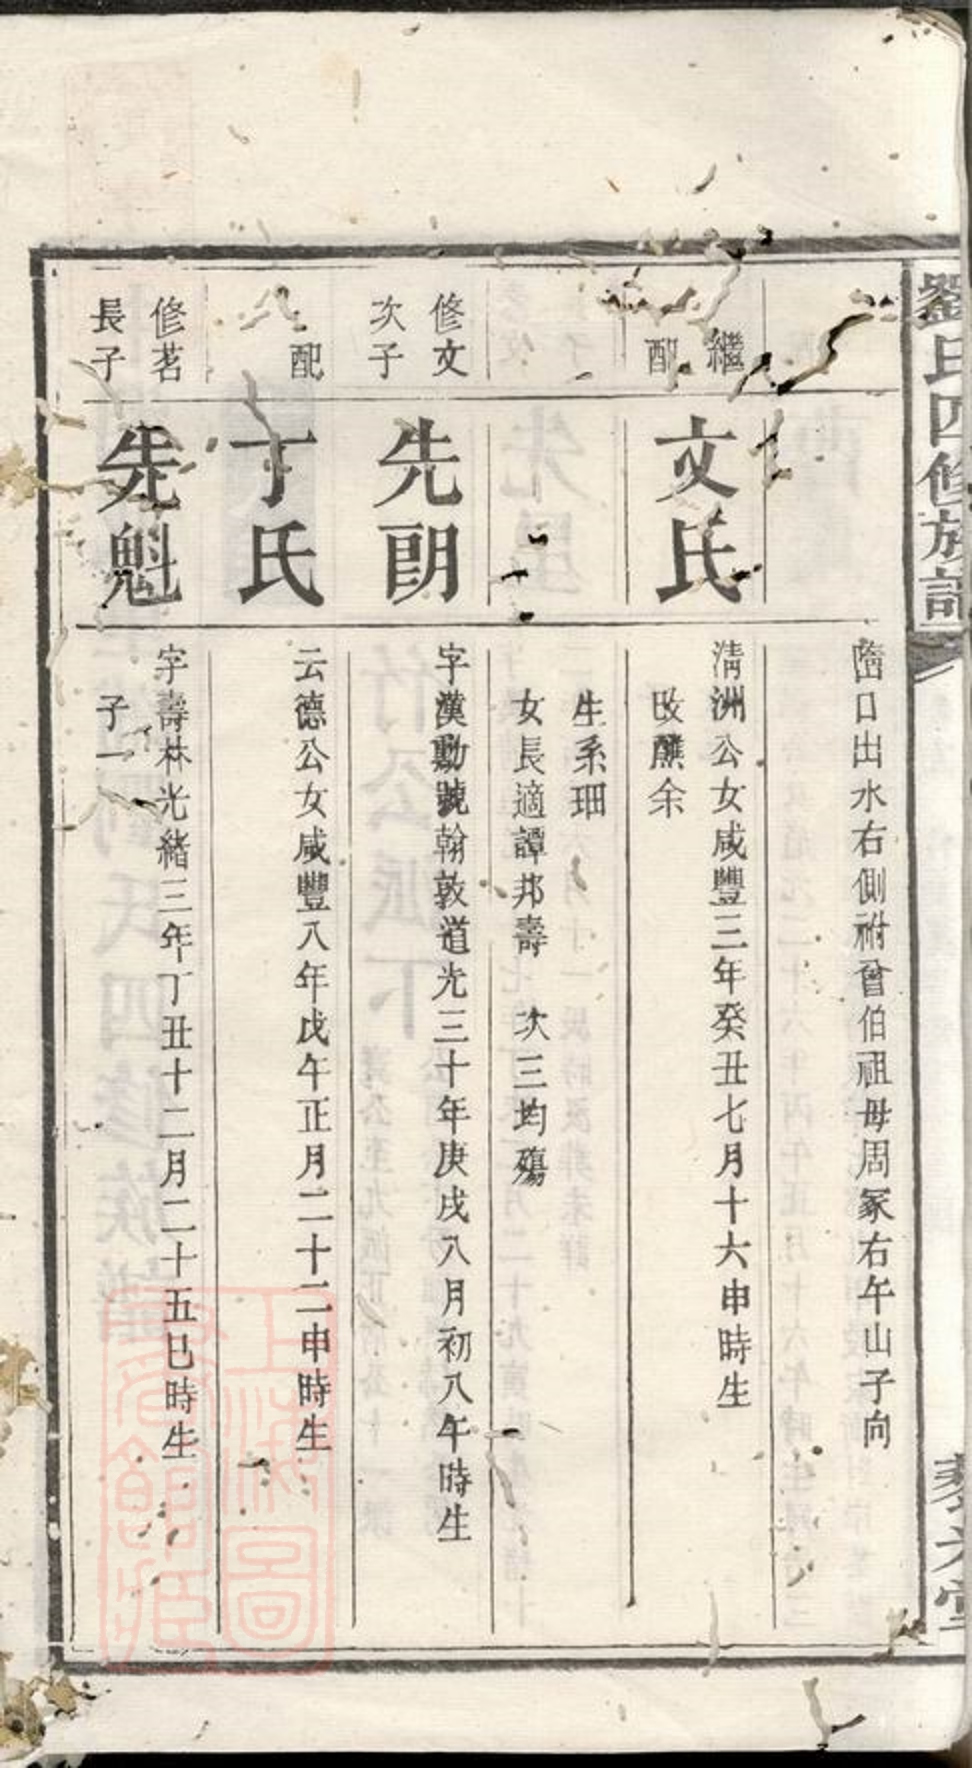 劉氏四修族譜
崙口出水右側祔曾伯祖母周冢右午山子向
繼配
文氏
淸洲公女咸豐三年癸丑七月十六申時生
改醮余
生系珊
女長適譚邦壽 次三均殤
修文次子
先朗
字漢勳號翰敦道光三十年庚戌八月初八午時生
配
丁氏
云德公女咸豐八年戊午正月二十二申時生
修茗長子
先魁
字壽林光緒三年丁丑十二月二十五巳時生
子一
上海圖書館藏